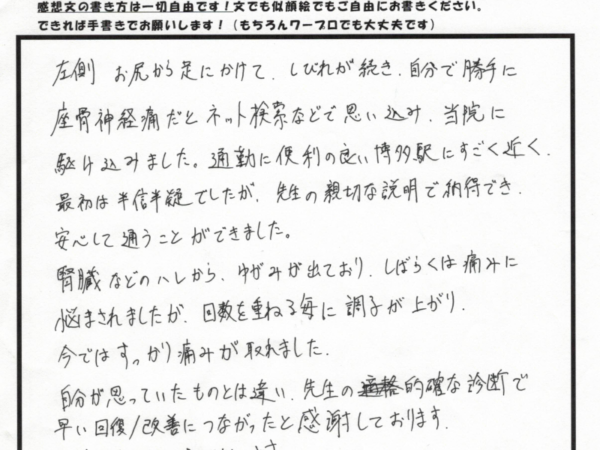 感想文の書き方は一切自由です！文でも似顔絵でもご自由にお書きください。
できれば手書きでお願いします！（もちろんワープロでも大丈夫です）
左側 お尻から足にかけて、しびれが続き、自分で勝手に
座骨神経痛だとネット検索などで思い込み、当院に
駆け込みました。通勤に便利の良い博多駅にすごく近く、
最初は半信半疑でしたが、先生の親切な説明で納得でき、
安心して通うことができました。
腎臓などのハレから、ゆがみが出ており、しばらくは痛みに
悩まされましたが、回数を重ねる毎に調子が上がり、
今ではすっかり痛みが取れました、
自分が思っていたものとは違い、先生の的確な診断で
早い回復/改善につながったと感謝しております。